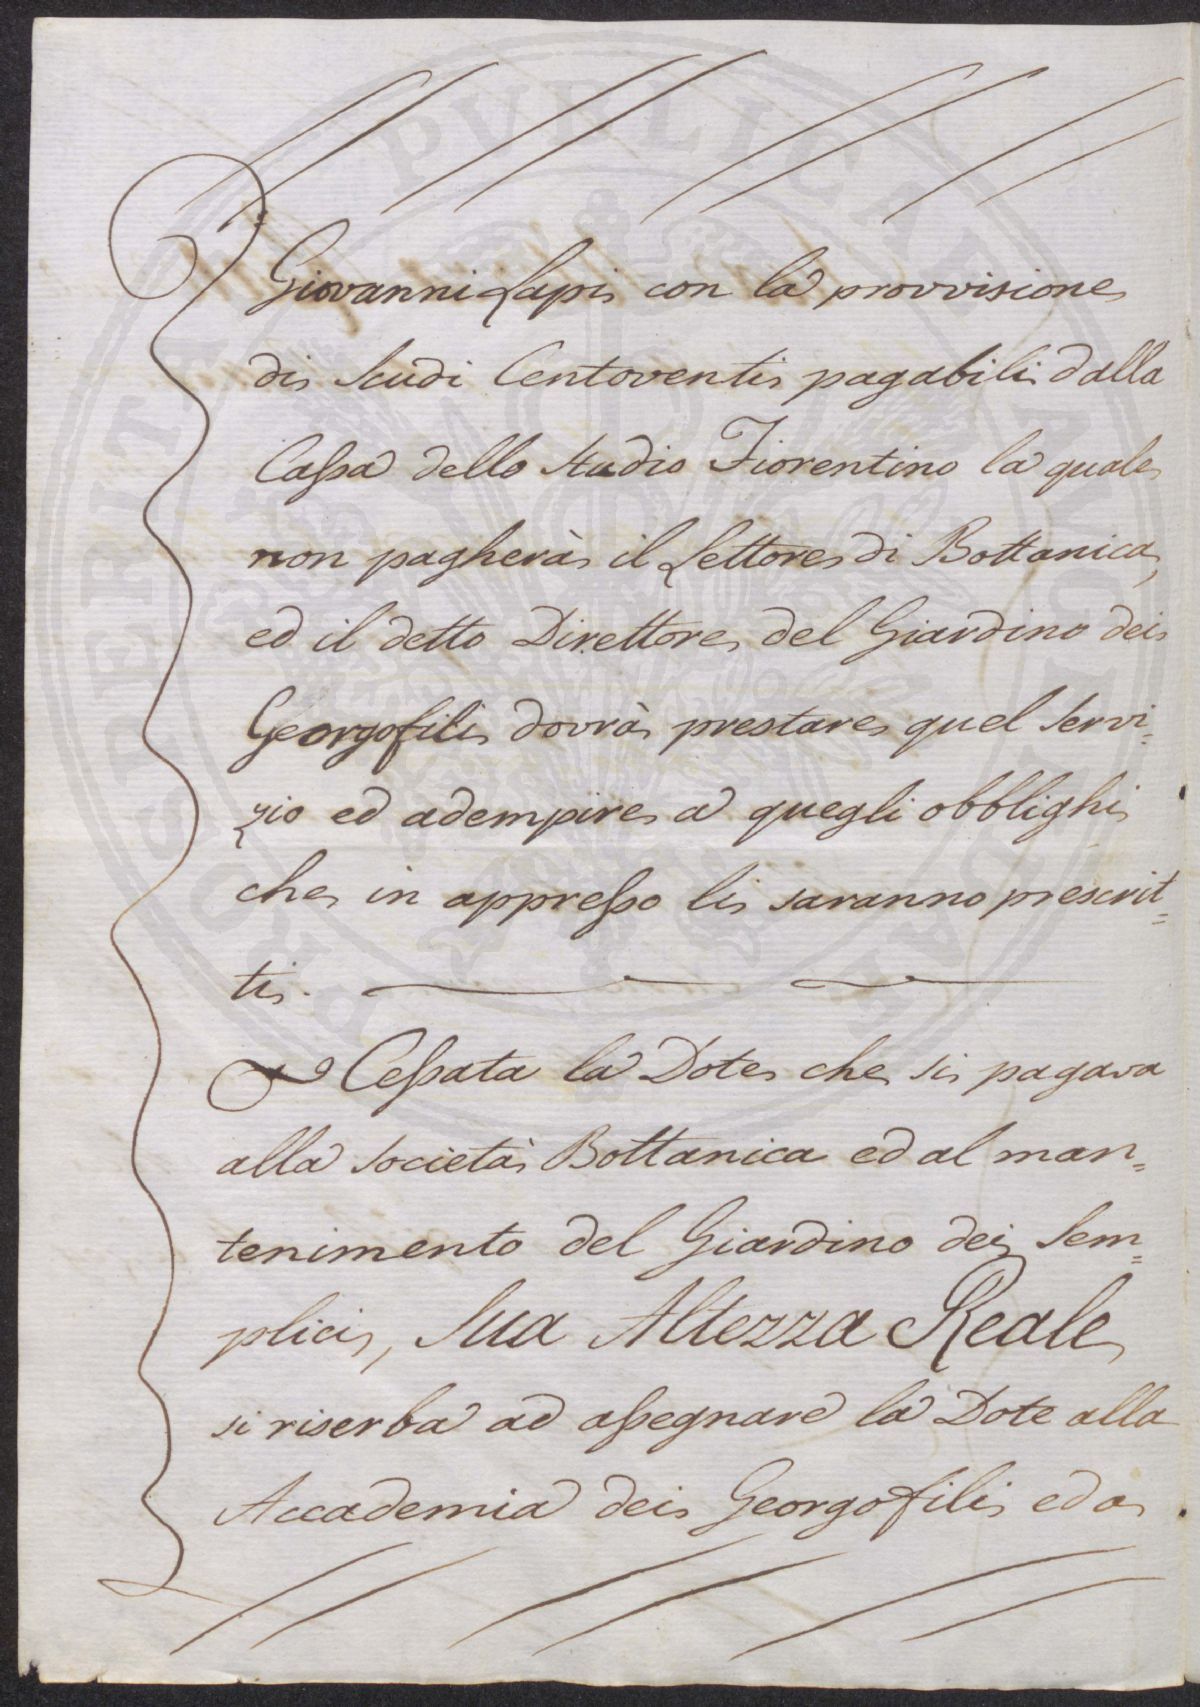 Giovanni Lapi con la provvisione
di Scudi Centoventi pagabili dalla
Cassa dello Studio Fiorentino la quale
non pagherà il Lettore di Bottanica,
ed il detto Direttore del Giardino dei
Georgofili dovrà prestare quel servi=
zio ed adempire a quegli obblighi
che in appresso li saranno prescrit=
ti.
Cessata la Dote che si pagava
alla Società Bottanica ed al man=
tenimento del Giardino dei Sem=
plici, Sua Altezza Reale
si riserba ad assegnare la Dote alla
Accademia dei Georgofili ed a
PROSPERITATE PUBLICAE AUGENDAE